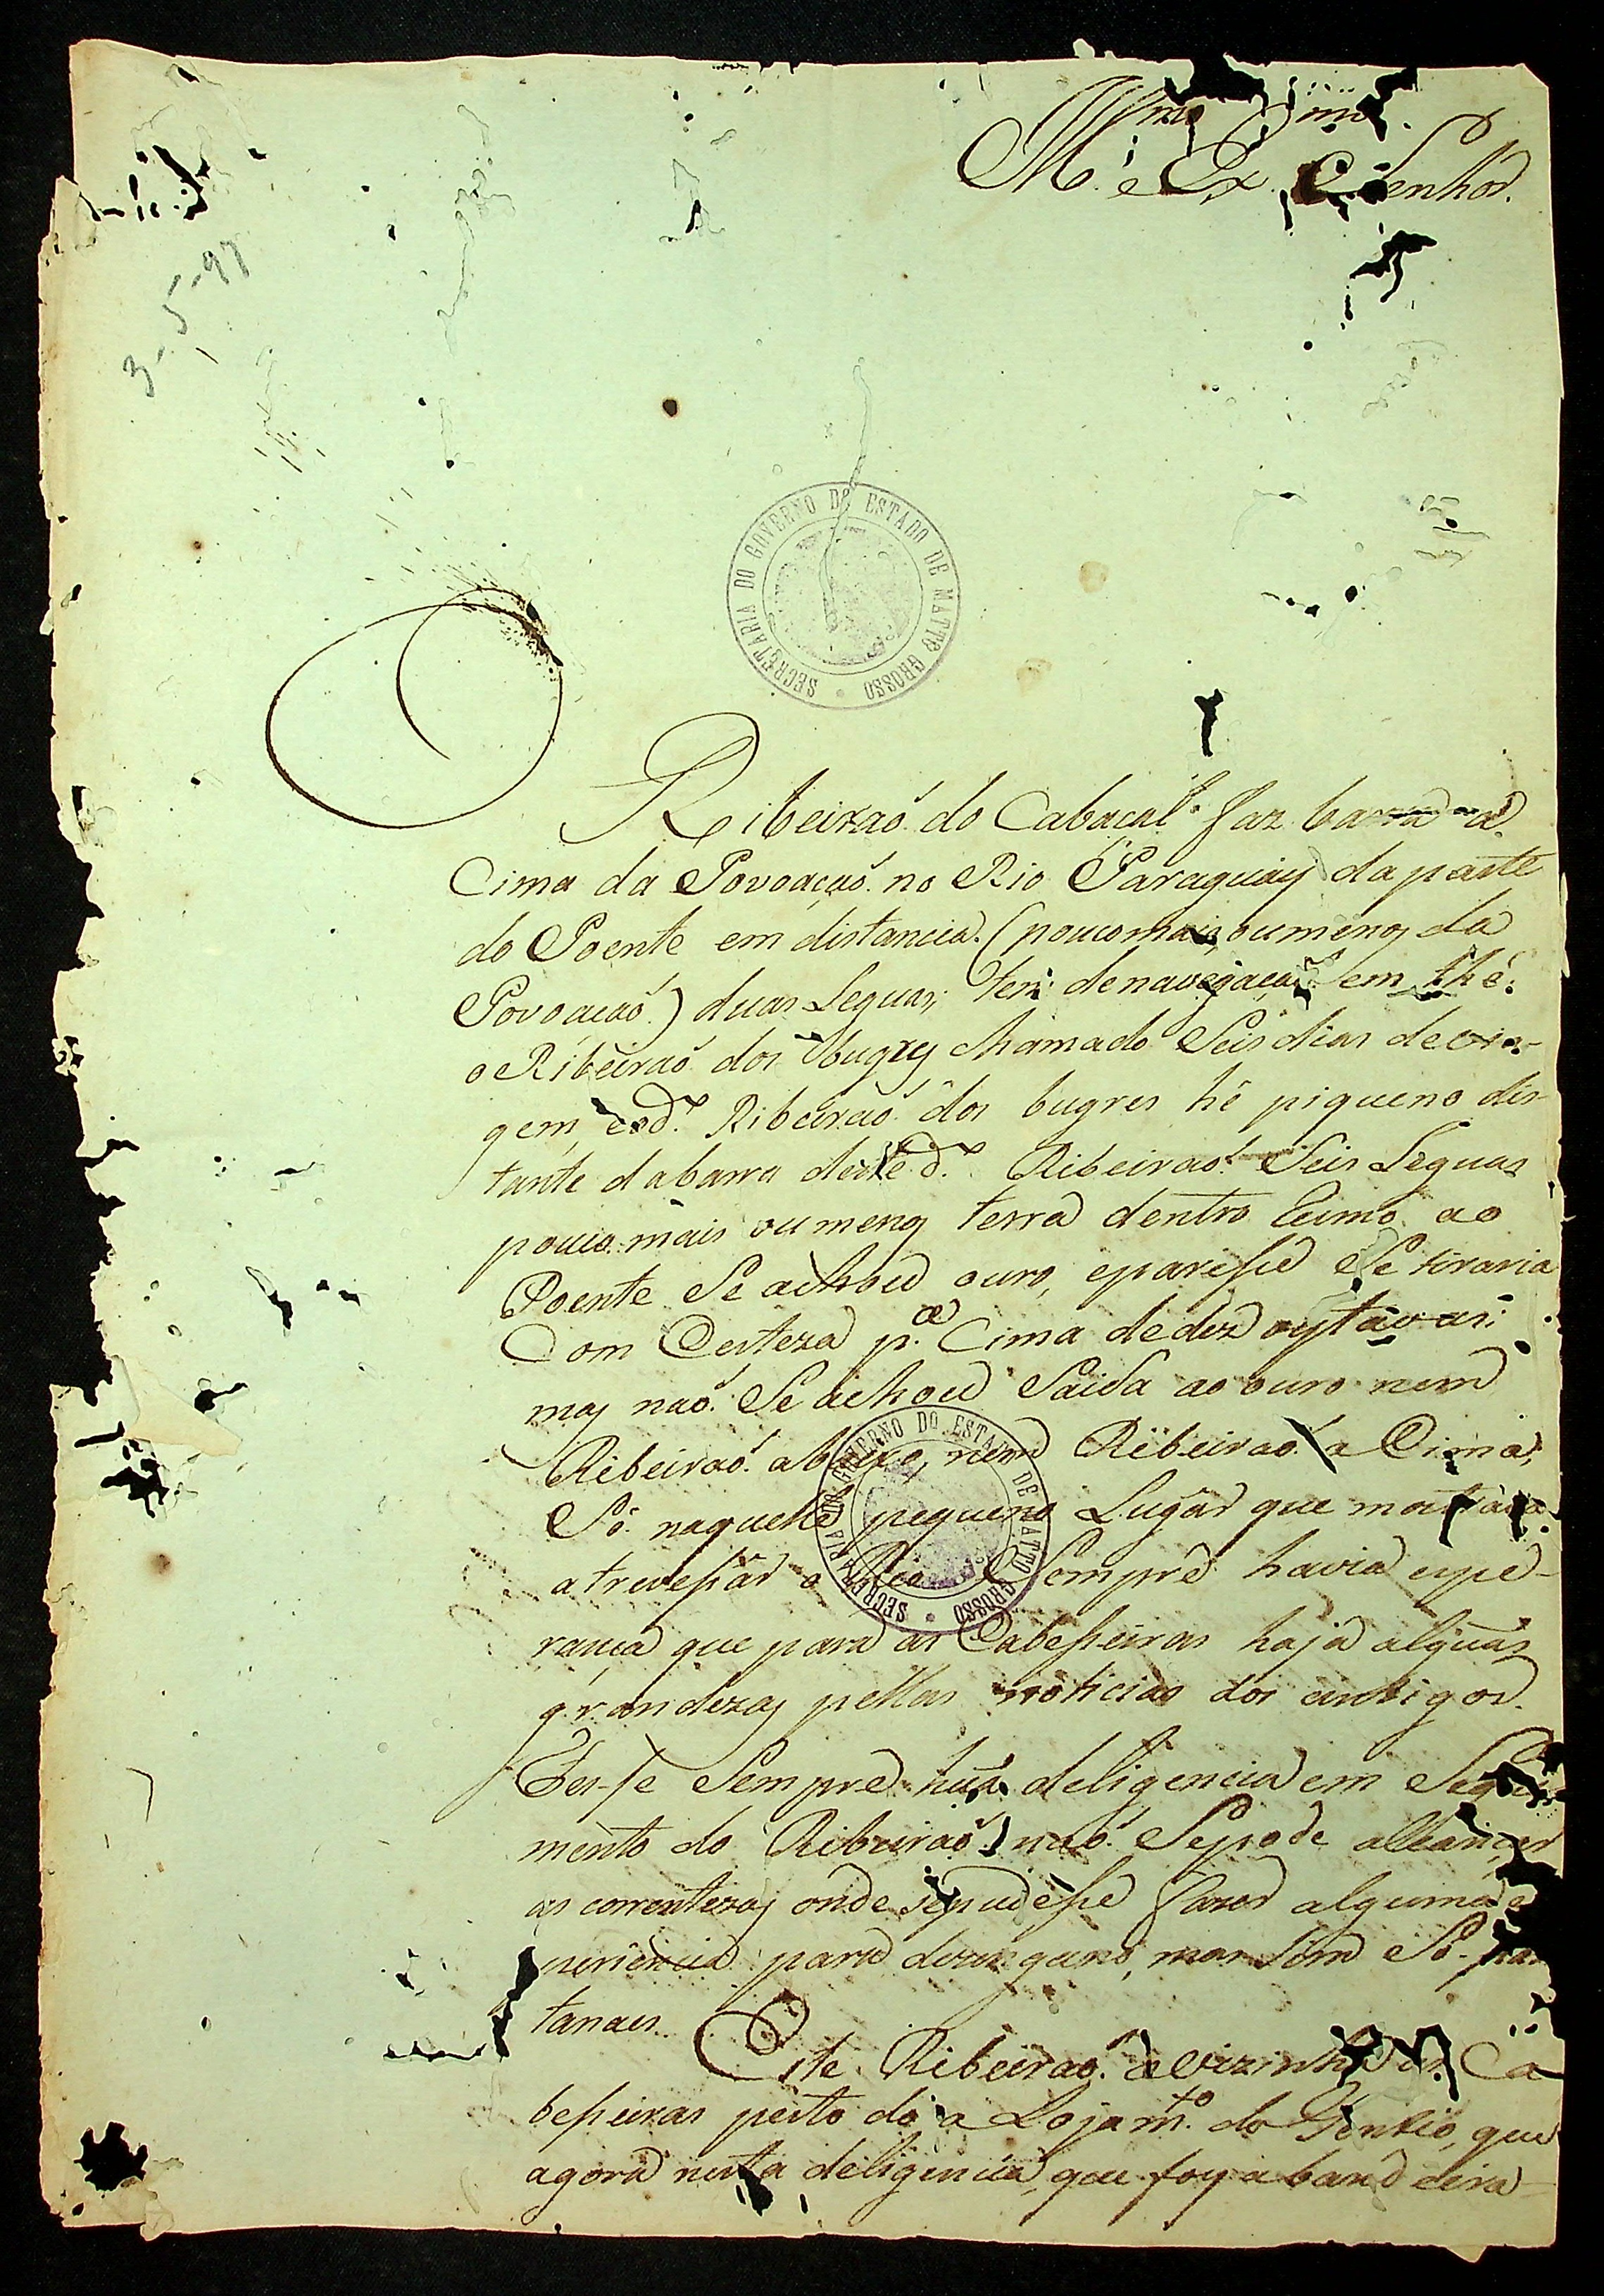 Illmo. e Exmo. Senhor.
3-5-97
SECRETARIA DO GOVERNO DO ESTADO DE MATTO GROSSO
O Ribeiraó do Cabaçal faz barra a
Cima da Povoaçaó no Rio Paraguay da parte
do Poente em distancia (pouco mais, ou menos da
Povoacaó) duas Leguas; tem de navegaçaó em thé
o Ribeiraó dos bugres chamado Seis dias de via-
gem, e o d.o Ribeiraó dos bugres hé piqueno dis-
tante da barra deste d.o Ribeiraó Seis Leguas
pouco mais ou menos terra dentro Rumo ao
Poente Se achou ouro, e paresse Se tiraria
Com Certeza p.a Cima de dez oytavas;
mas naó Se achou Saida ao ouro nem
Ribeiraó abaixo, nem Ribeiraó a Cima,
Só naquelle pequeno Lugar que mostrava
atrevessar o Rio. Sempre havia espe-
rança que para as Cabesseiras haja alguas
grandezas pellas noticias dos antigos.
Fes-se Sempre hua deligencia em Segui-
mento do Ribeiraó, naó Se pode alcançar
as correntezas onde se pudesse fazer alguma ex
periencia para dezengano, mas sim Só pan
tanaes.
Este Ribeiraó avizinha as Ca
besseiras perto do a Lojam.to do Gentio, que
agora nesta deligencia, que foy a band eira
SECRETARIA DO GOVERNO DO ESTADO DE MATTO GROSSO